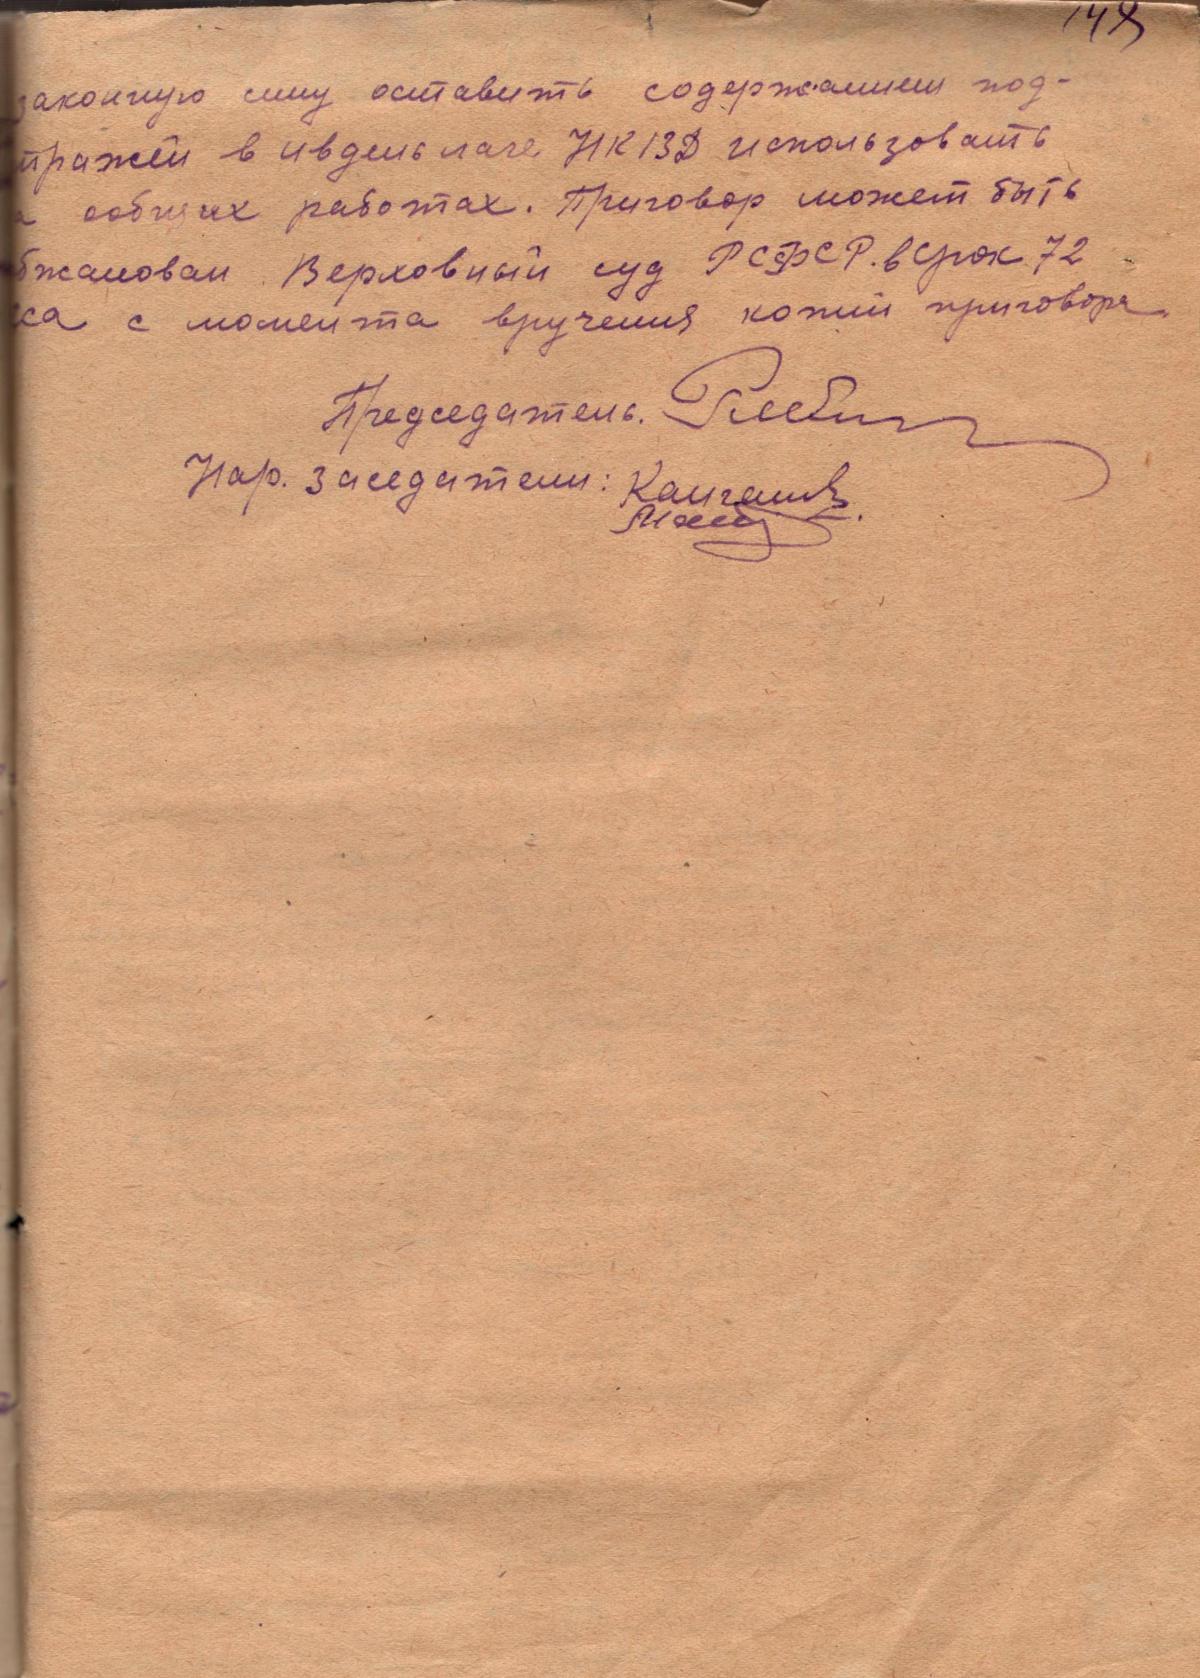 148
законную силу оставить содержанием под-
тражей в ивдельлаге НКВД использовать
аообщих работах. Приговор может быть
бжалован Верховный суд РСФСР. в срок 72
са с момента вручения копии приговора.
Председатель.
Нар. заседатели: